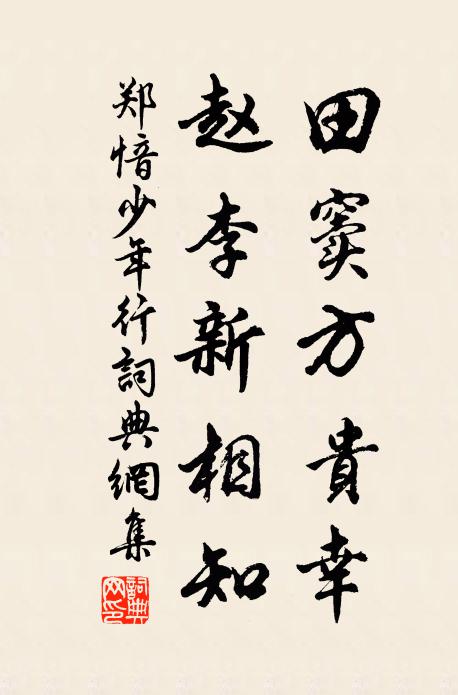 田窦方貴幸
赵李新相知
郑愔少年行詞典網集
詞典网印